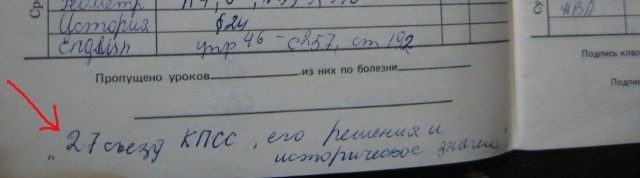 Ср
Геометр
История §24
English упр 46 – с 257, ст 192
Пропущено уроков из них по болезни
„27 съезд КПСС, его решения и
историческое значение"
НВП
Подпись клас
Подпи